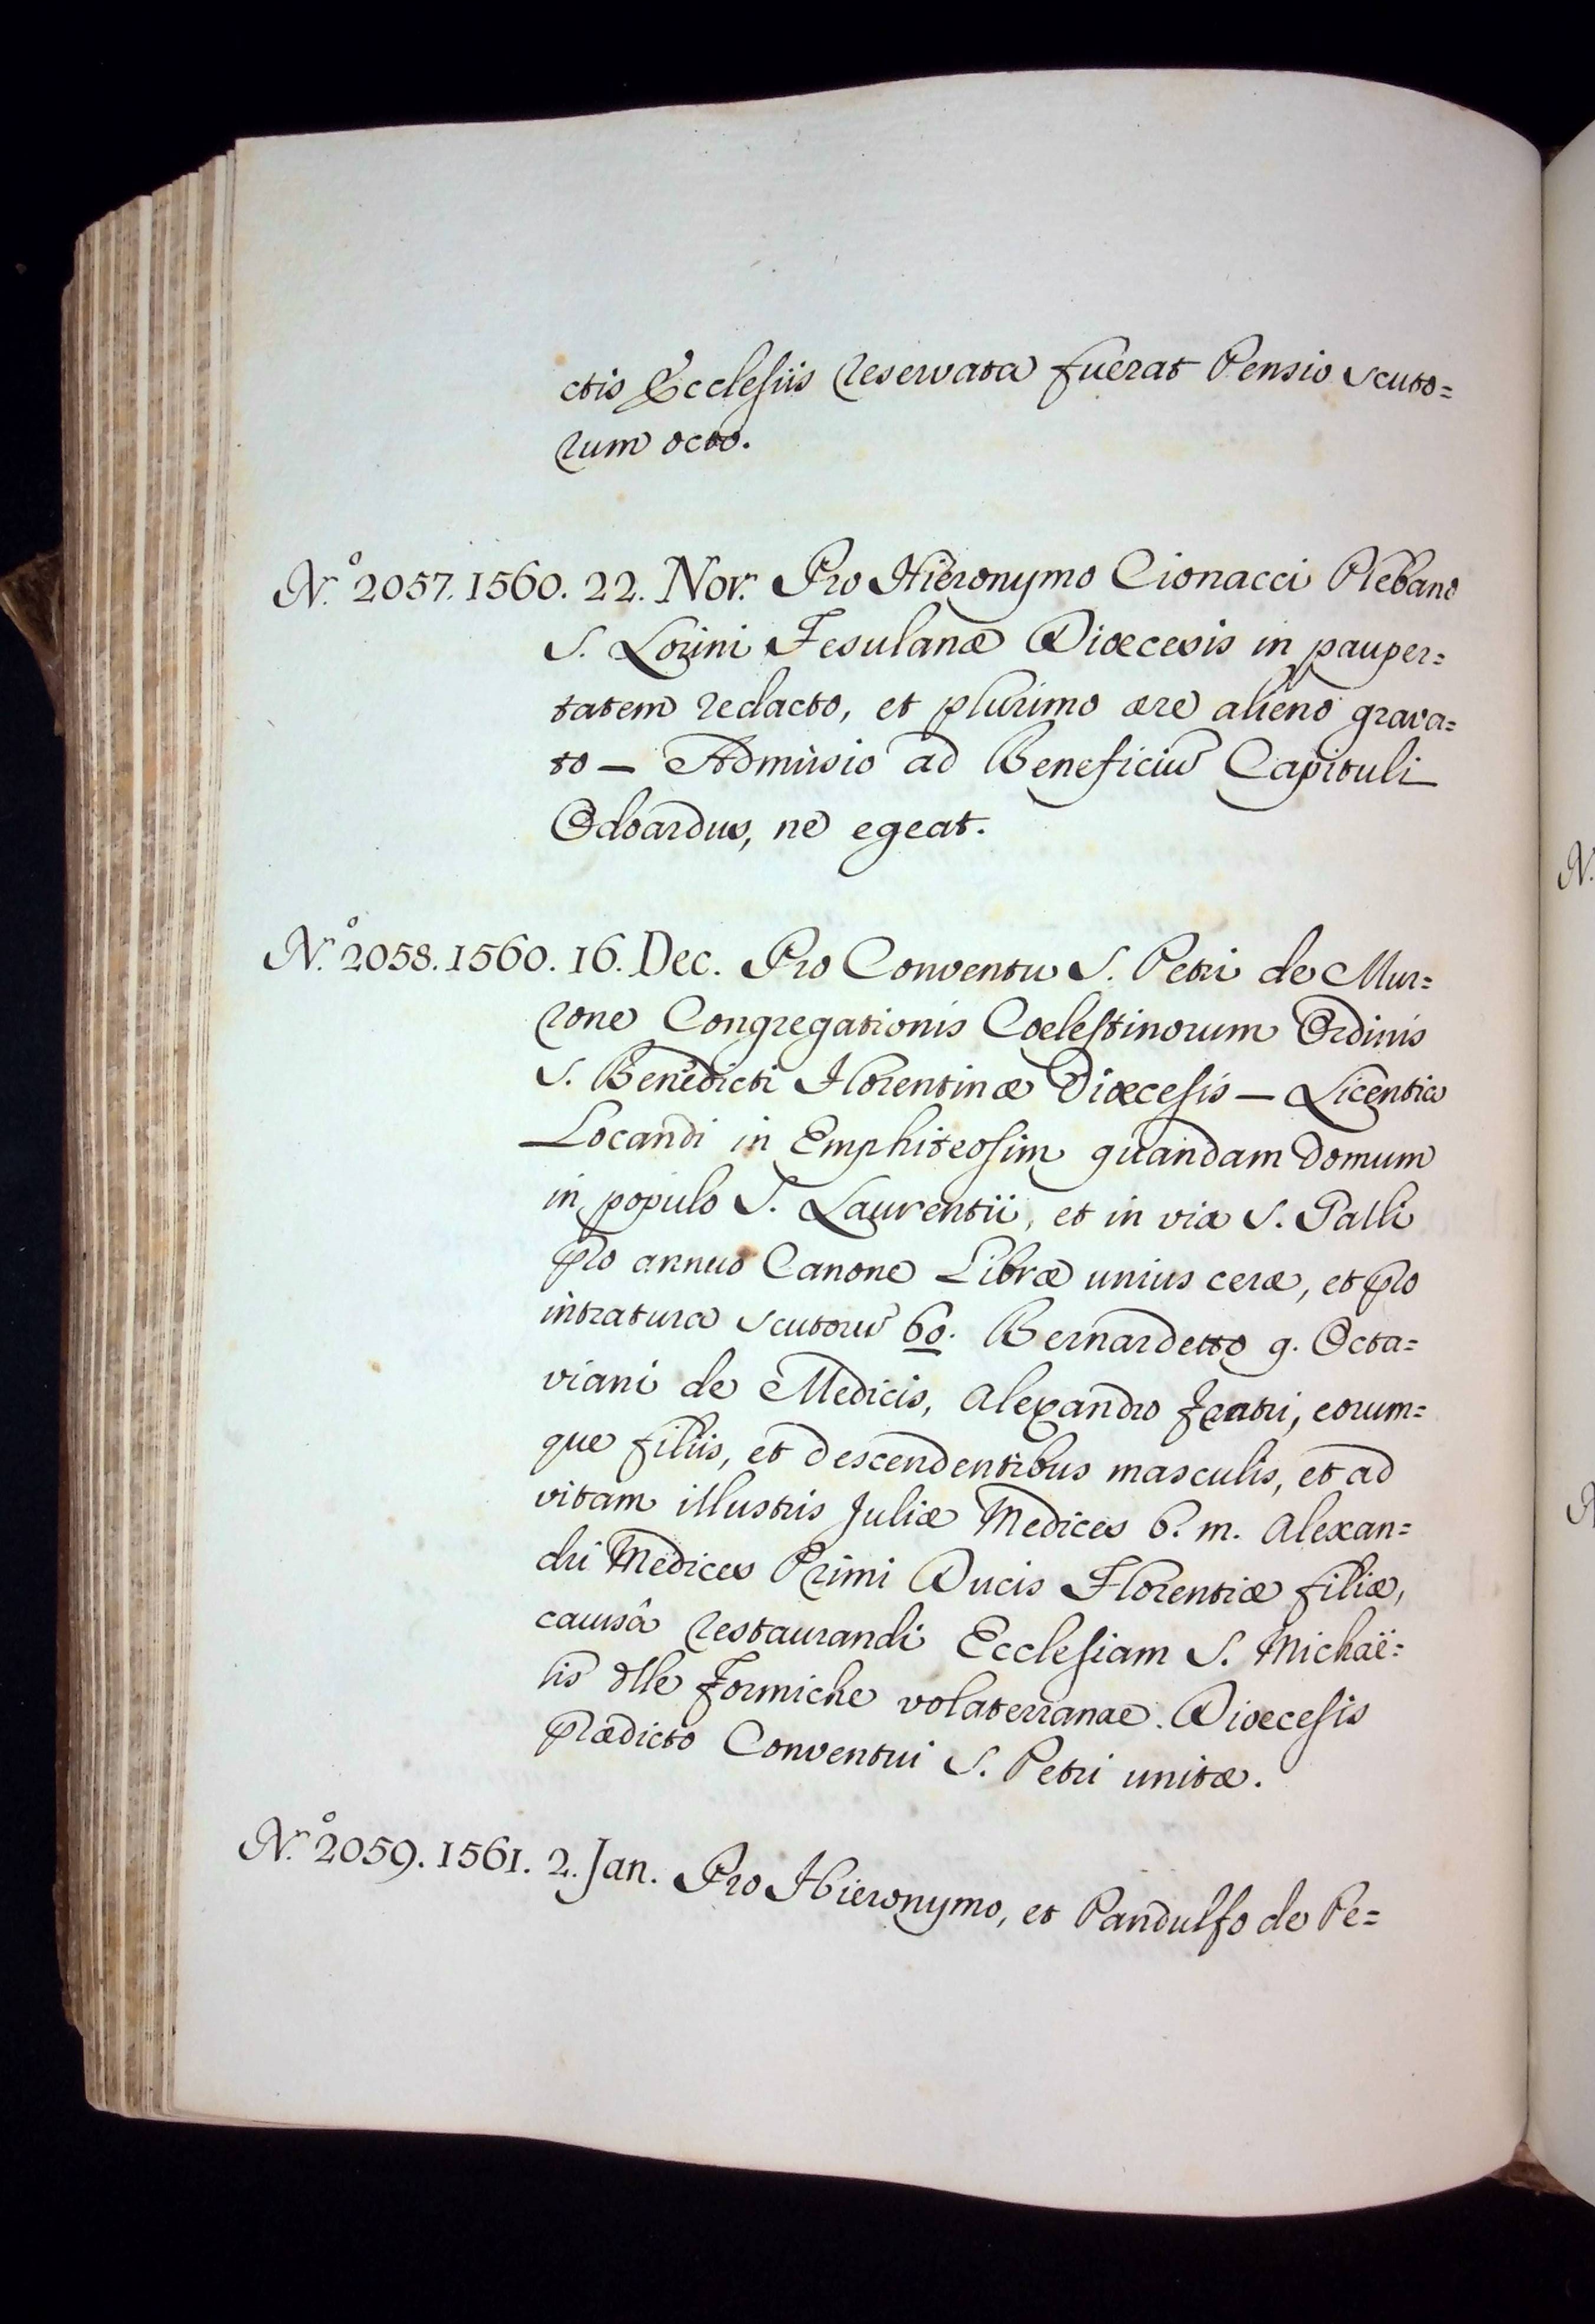 ctis Ecclesiis reservata fuerat Pensio scuto=
rum octo.
N.º 2057. 1560. 22. Nov. Pro Hieronymo Cionacci Plebano
S. Lorini Fesulanæ Diœcesis in pauper=
tatem redacto, et plurimo ære alieno grava=
to — Admissio ad Beneficiū Capituli
Odoardus, ne egeat.
N.º 2058. 1560. 16. Dec. Pro Conventu S. Petri de Mur=
rone Congregationis Coelestinorum Ordinis
S. Benedicti Florentinæ Diœcesis — Licentia
Locandi in Emphiteosim quandam domum
in populo S. Laurentii, et in via S. Galli
pro annuo Canone Libræ unius ceræ, et pro
intratura scutorū 60. Bernardetto q. Octa=
viani de Medicis, Alexandro fratri, eorum=
que filiis, et descendentibus masculis, et ad
vitam illustris Juliæ Medices b. m. Alexan=
dri Medices Primi Ducis Florentiæ filiæ,
causâ restaurandi Ecclesiam S. Michaë=
lis dlle Formiche volaterranae Dioecesis
prædicto Conventui S. Petri unitæ.
N.º 2059. 1561. 2. Jan. Pro Hieronymo, et Pandulfo de Pe=
N.
N